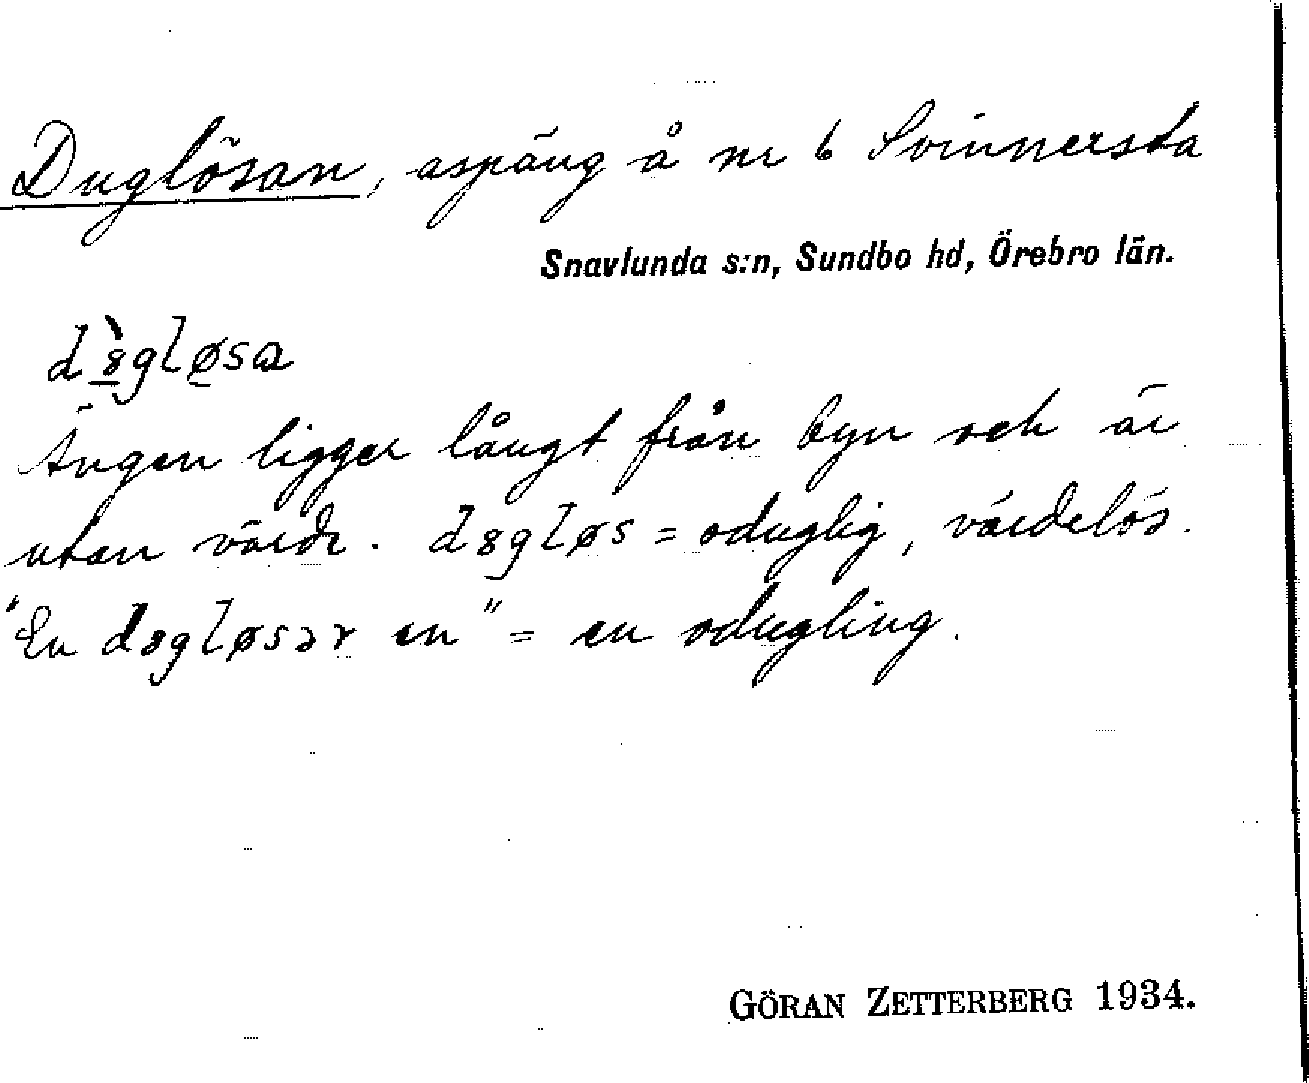 Duglösan, aspäng å nr 6 Svinnersta
Snavlunda s:n, Sundbo hd, Örebro län.
d8̀gløsa
Ängen ligger långt från byn och är
utan värde. d8gløs = oduglig, värdelös.
"En d8gløsər en" = en odugling.
GÖRAN ZETTERBERG 1934.